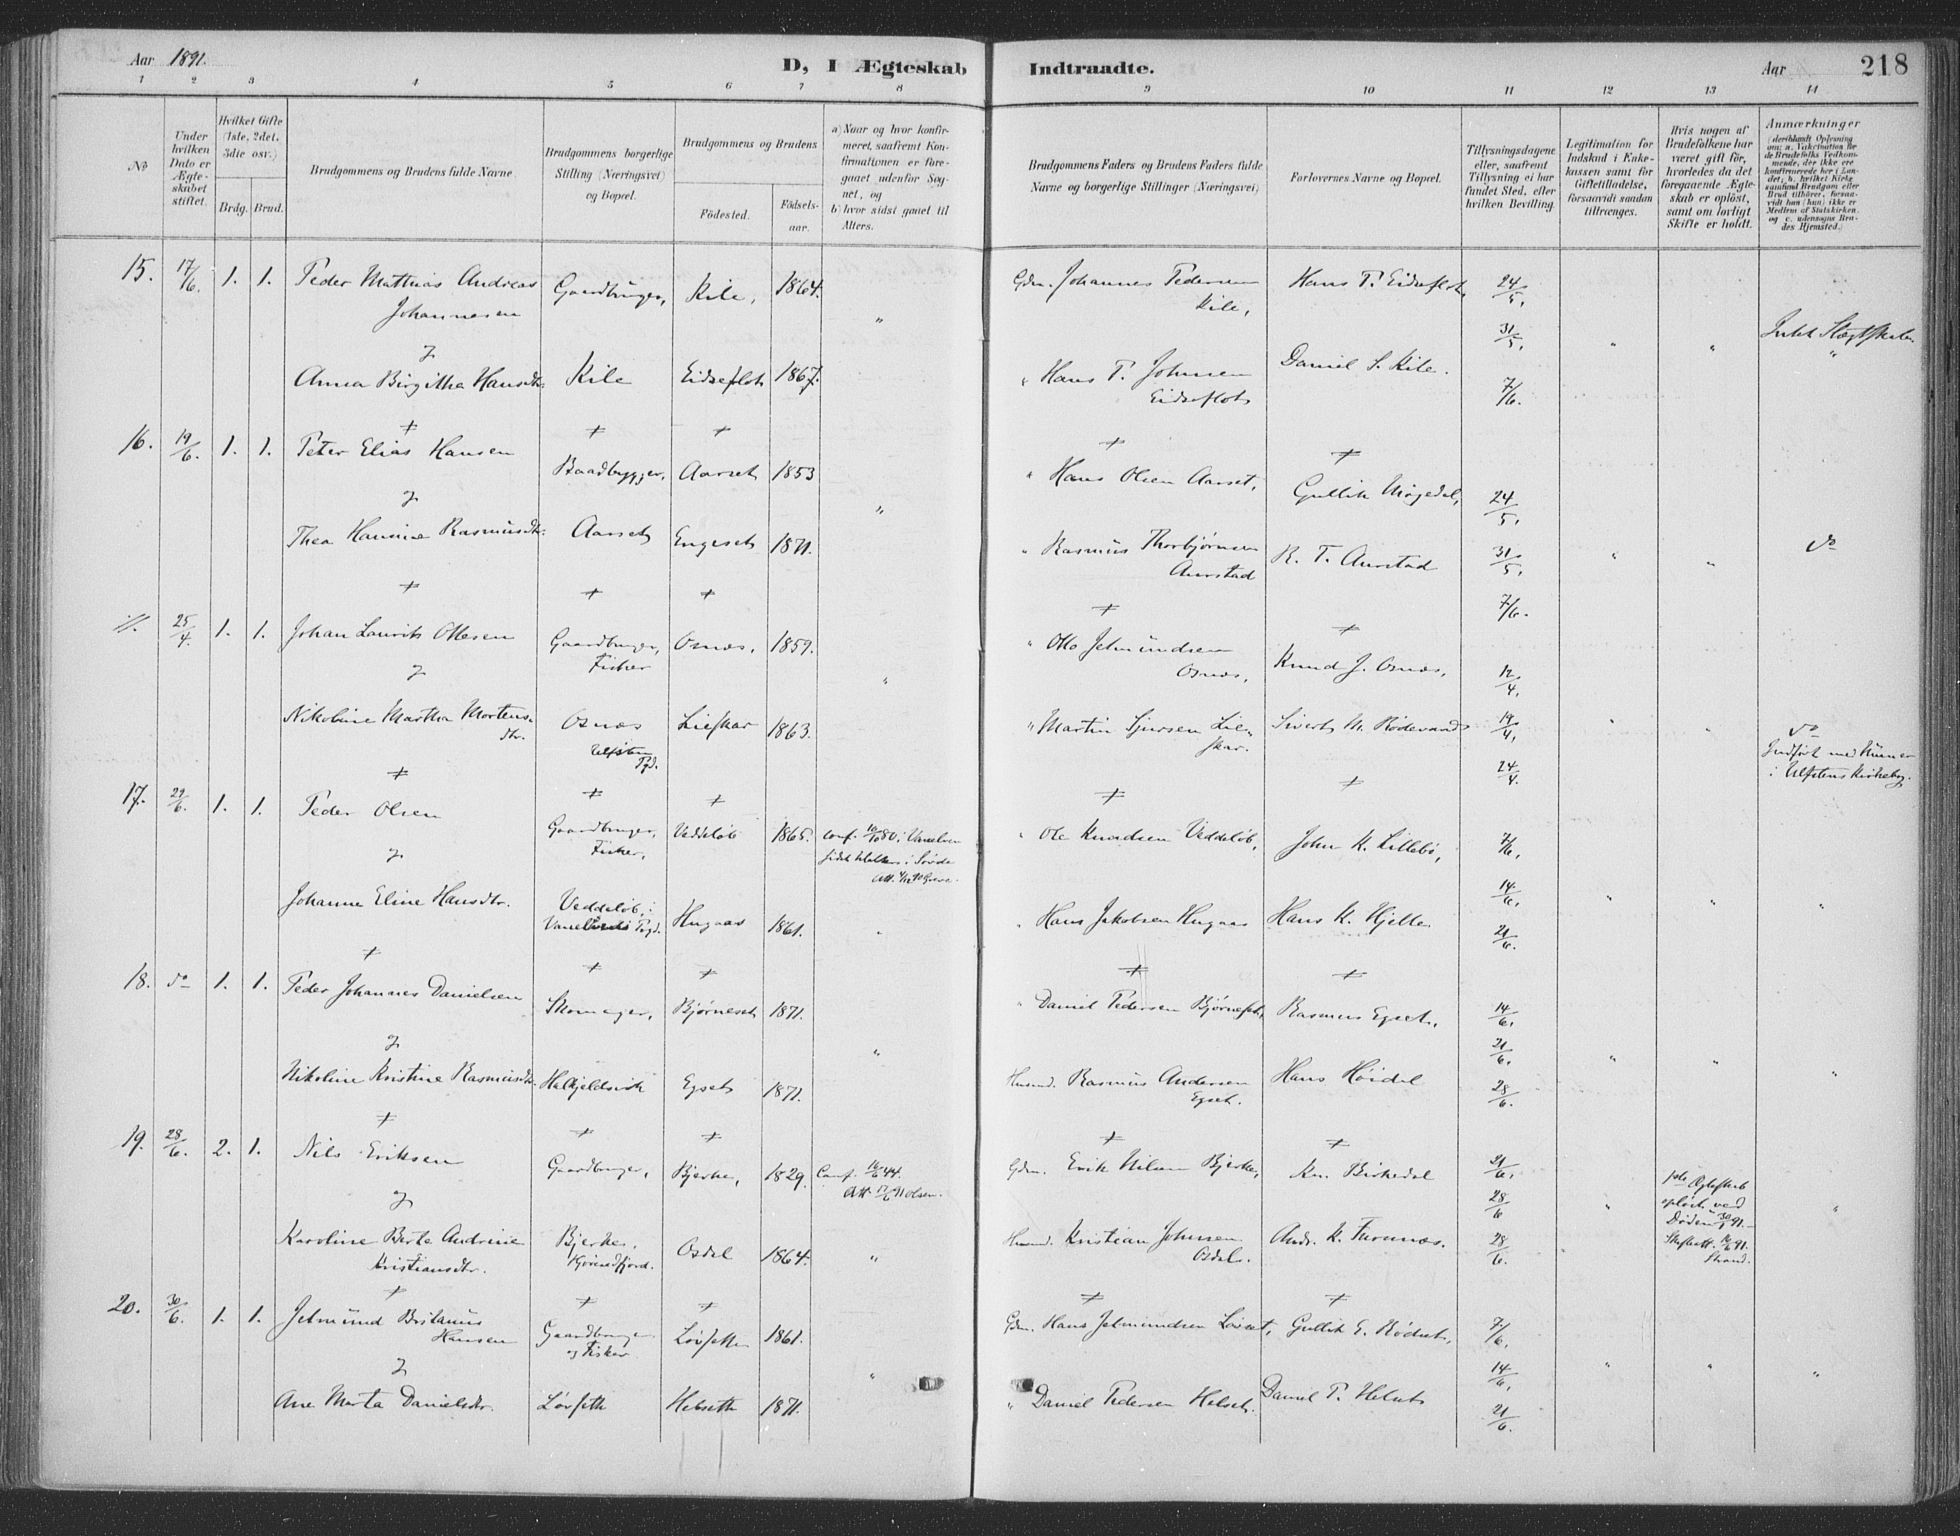 Aar 1891. D, I Ægteskab Indtraadte. Aar 218
1 2 3 4 5 6 7 8 9 10 11 12 13 14
No
Under hvilken Dato er Ægteskabet stiftet.
Hvilket Gifte (1ste, 2det, 3die osv.)
Brdg. Brud.
Brudgommens og Brudens fulde Navne.
Brudgommens borgerlige Stilling (Næringsvei) og Bopæl.
Brudgommens og Brudens
Födested.
Födselsaar.
a) Naar og hvor konfirmeret, saafremt Konfirmationen er foregaaet udenfor Sognet, og
b) hvor sidst gaaet til Alters.
Brudgommens Faders og Brudens Faders fulde Navne og borgerlige Stillinger (Næringsvei)
Forlovernes Navne og Bopæl.
Tillysningsdagene eller, saafremt Tillysning ei har fundet Sted, efter hvilken Bevilling.
Legitimation for Indskud i Enkekassen samt for Giftetilladelse, forsaavidt saadan tiltrænges.
Hvis nogen af Brudefolkene har været gift för, hvorledes da det foregaaende Ægteskab er oplöst, samt om lovligt Skifte er holdt.
Anmærkninger
(deriblandt Oplysning om: a. Vakcination for de Brudefolks Vedkommende, der ikke ere konfirmerede her i Landet; b. hvilket Kirkesamfund Brudgom eller Brud tilhörer, forsaavidt han (hun) ikke er Medlem af Statskirken, og c. udensogns Brudes Hjemsted.)
15. 17/6. 1. 1. Peder Mathias Andreas Gaardbruger, Kile, 1864. " Gdm. Johannes Pedersen Hans P. Eidseflot, 24/5,
Johannesen Kile, 31/5, " " Intet Slægtskab.
g
Anna Birgitha Hansdtr. Kile Eidseflot 1867. " Hans P. Johnsen Daniel S. Kile. 7/6.
Eidseflot
16. 19/6. 1. 1. Peter Elias Hansen Baadbygger, Aarset 1853 " " Hans Olsen Aarset, Gullik Møgedal, 24/5,
g
Thea Hansine Rasmusdtr. Aarset Engeset 1871. " Rasmus Thorbjørnsen R. T. Aurstad 31/5, " " do
Aurstad 7/6.
11. 25/4. 1. 1. Johan Laurits Ottesen Gaardbruger, Osnæs, 1859. " " Otto Jetmundsen Knud J. Osnæs, 12/4,
Fisker Osnæs,
g
Nikoline Martha Mortens- Osnæs Lieskar 1863. " Martin Sjursen Lie- Sivert M. Rødevand 19/4, " " do
dtr. Ulfsten Pgd. skar. 24/4 Indført med Numer
i Ulfstens Kirkebog.
17. 29/6. 1. 1. Peder Olsen Gaardbruger, Veddeløb 1865. Conf. 10/10 80 i Vanelven " Ole Knudsen Veddeløb, John K. Lillebø, 7/6,
Fisker,
g
Johanne Eline Hansdtr. Veddeløb, i Hugaas 1861. " " Hans Jakobsen Hugaas Hans K. Hjelle 14/6, " " "
21/6.
18. do 1. 1. Peder Johannes Danielsen Skomager, Bjørneset 1871. " " Daniel Pedersen Bjørneset, Rasmus Egset, 14/6,
g 21/6,
Nikoline Kristine Rasmusdtr. Halkjeldsvik Egset 1871. Husmd. Rasmus Andersen Hans Høidal 28/6. " " "
Egset.
19. 28/6. 2. 1. Nils Eriksen Gaardbruger, Bjerke, 1829. Conf. 16/6 44. Gdm. Erik Nilsen Bjerke, Kn. Birkedal 21/6, 1ste Ægteskab
Att. 17/6 91 Olsen. 28/6 opløst ved
g
Karoline Berte Andrine Bjerke, Osdal 1864. " Husmd. Kristian Johnsen Andr. K. Furenæs. 28/6. " Døden 30/1 91.- "
Kristiansdtr. Hjørendfjord. Osdal. Skifteatt. 16/6 91.
Strand.
20. 30/6. 1. 1. Jetmund Britanus Gaardbruger Løvseth 1861. " Gdm. Hans Jetmundsen Løvset, Gullik E. Rødset, 7/6,
Hansen og Fisker
g
Ane Marta Danielsdtr. Løvseth Helseth 1871. " Daniel Pedersen Helset. Daniel P. Helset 14/6, " " "
21/6.